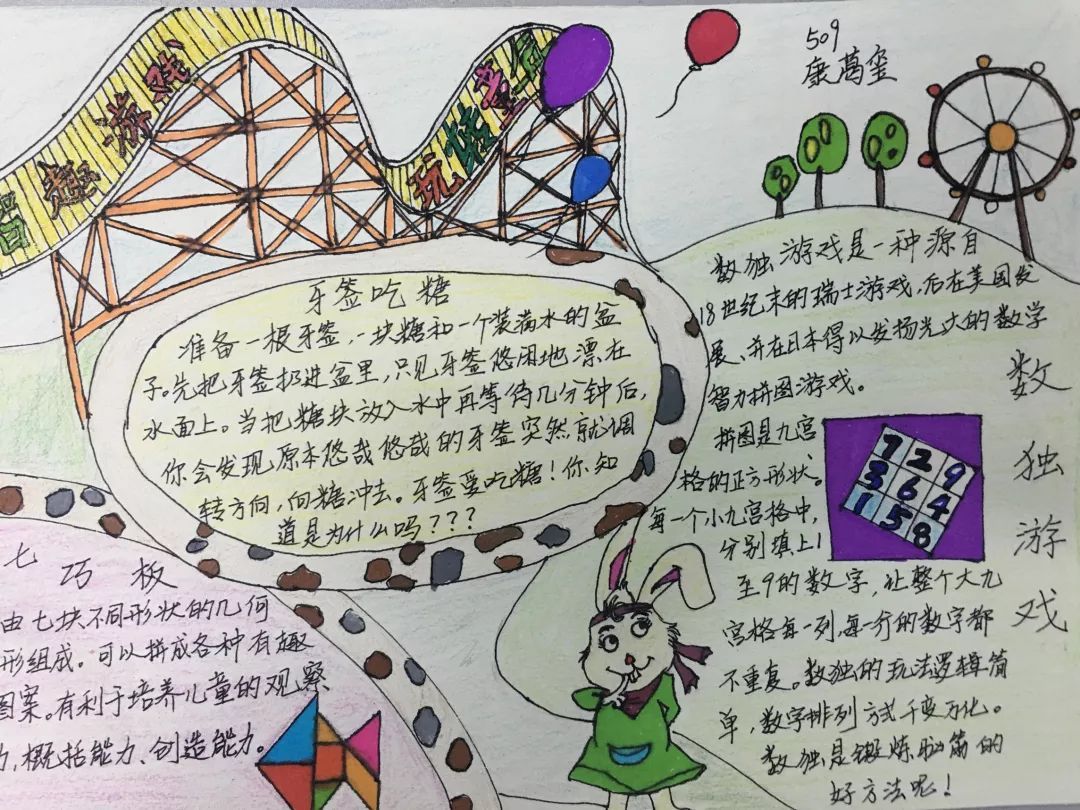 智趣游戏
玩转童
509
康萬玺
牙签吃糖
准备一根牙签、一块糖和一个装满水的盆
子。先把牙签扔进盆里,只见牙签悠闲地漂在
水面上。当把糖块放入水中再等待几分钟后,
你会发现原本悠哉悠哉的牙签突然就调
转方向,向糖冲去。牙签爱吃糖!你知
道是为什么吗???
七巧板
由七块不同形状的几何
形组成。可以拼成各种有趣
图案。有利于培养儿童的观察
力,概括能力、创造能力。
数独游戏
数独游戏是一种源自
18世纪末的瑞士游戏,后在美国发
展、并在日本得以发扬光大的数学
智力拼图游戏。
拼图是九宫
格的正方形状、
每一个小九宫格中,
分别填上1
至9的数字,让整个大九
宫格每一列、每一行的数字都
不重复。数独的玩法逻辑简
单,数字排列方式千变万化。
数独是锻炼脑筋的
好方法呢!
7 2 9
3 6 4
1 5 8